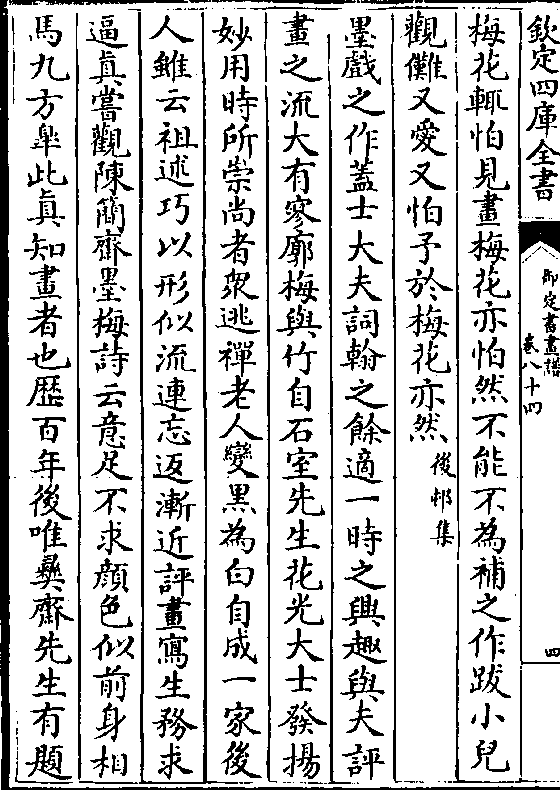 欽定四庫全書
御定書畫譜
卷八十四
四
梅花輒怕見畫梅花亦怕然不能不為補之作跋小兒
觀儺又愛又怕予於梅花亦然後邨集
墨戲之作蓋士大夫詞翰之餘適一時之興趣與夫評
畫之流大有寥廓梅與竹自石室先生花光大士發揚
妙用時所崇尚者衆逃禪老人變黑為白自成一家後
人雖云祖述巧以形似流連忘返漸近評畫寫生務求
逼真嘗觀陳簡齋墨梅詩云意足不求顔色似前身相
馬九方臯此真知畫者也歴百年後唯彝齋先生有題